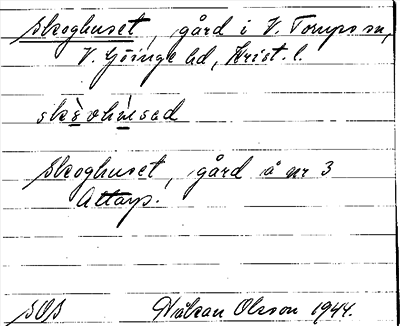 Skoghuset, gård i V. Torups sn,
V. Göinge hd, Krist. l.
skè̱vhu̱̍sed
Skoghuset, gård å nr 3
Attarp.
SOB Håkan Olsson 1944.